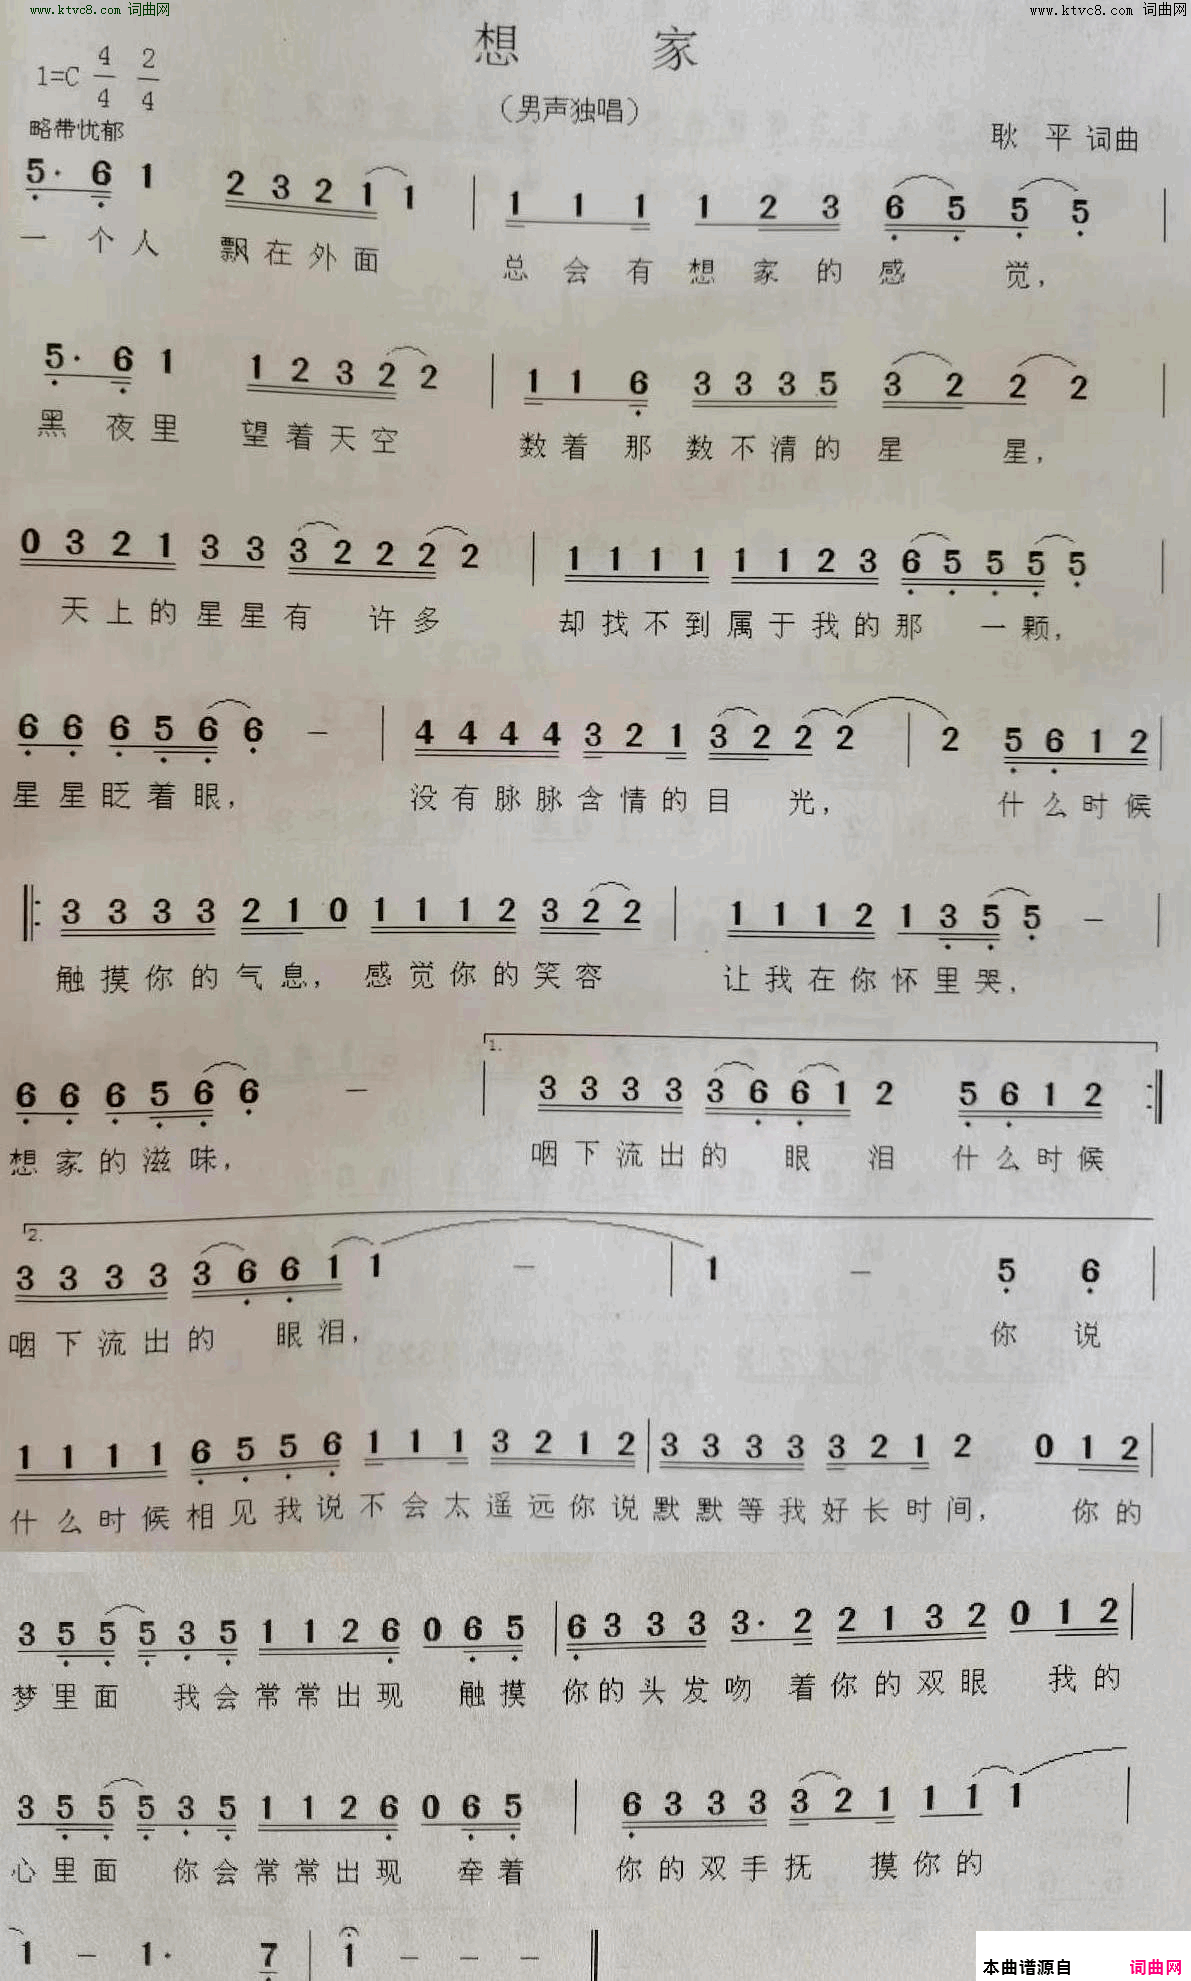 www.ktvc8.com 词曲网
www.ktvc8.com 词曲网
想 家
1=C 4/4 2/4
（男声独唱）
略带忧郁
耿 平 词曲
5· 6 1 2 3 2 1 1 | 1 1 1 1 2 3 6 5 5 5 |
一 个 人 飘 在 外 面 总 会 有 想 家 的 感 觉，
5· 6 1 1 2 3 2 2 | 1 1 6 3 3 3 5 3 2 2 2 |
黑 夜 里 望 着 天 空 数 着 那 数 不 清 的 星 星，
0 3 2 1 3 3 3 2 2 2 2 | 1 1 1 1 1 1 2 3 6 5 5 5 5 |
天 上 的 星 星 有 许 多 却 找 不 到 属 于 我 的 那 一 颗，
6 6 6 5 6 6 － | 4 4 4 4 3 2 1 3 2 2 2 | 2 5 6 1 2 |
星 星 眨 着 眼， 没 有 脉 脉 含 情 的 目 光， 什 么 时 候
‖: 3 3 3 3 2 1 0 1 1 1 2 3 2 2 | 1 1 1 2 1 3 5 5 － |
触 摸 你 的 气 息， 感 觉 你 的 笑 容 让 我 在 你 怀 里 哭，
1.
6 6 6 5 6 6 － | 3 3 3 3 3 6 6 1 2 5 6 1 2 :‖
想 家 的 滋 味， 咽 下 流 出 的 眼 泪 什 么 时 候
2.
3 3 3 3 3 6 6 1 1 － | 1 － 5 6 |
咽 下 流 出 的 眼 泪， 你 说
1 1 1 1 6 5 5 6 1 1 1 3 2 1 2 | 3 3 3 3 3 2 1 2 0 1 2 |
什 么 时 候 相 见 我 说 不 会 太 遥 远 你 说 默 默 等 我 好 长 时 间， 你 的
3 5 5 5 3 5 1 1 2 6 0 6 5 | 6 3 3 3 3· 2 2 1 3 2 0 1 2 |
梦 里 面 我 会 常 常 出 现 触 摸 你 的 头 发 吻 着 你 的 双 眼 我 的
3 5 5 5 3 5 1 1 2 6 0 6 5 | 6 3 3 3 3 2 1 1 1 1 |
心 里 面 你 会 常 常 出 现 牵 着 你 的 双 手 抚 摸 你 的
1 － 1· 7 | 1 － － － ‖
本曲谱源自 词曲网